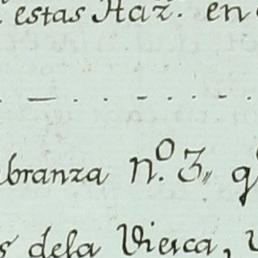 estas Haz. en
. — . - . - . - .
branza n.º 3,, q
s dela Viesca, v